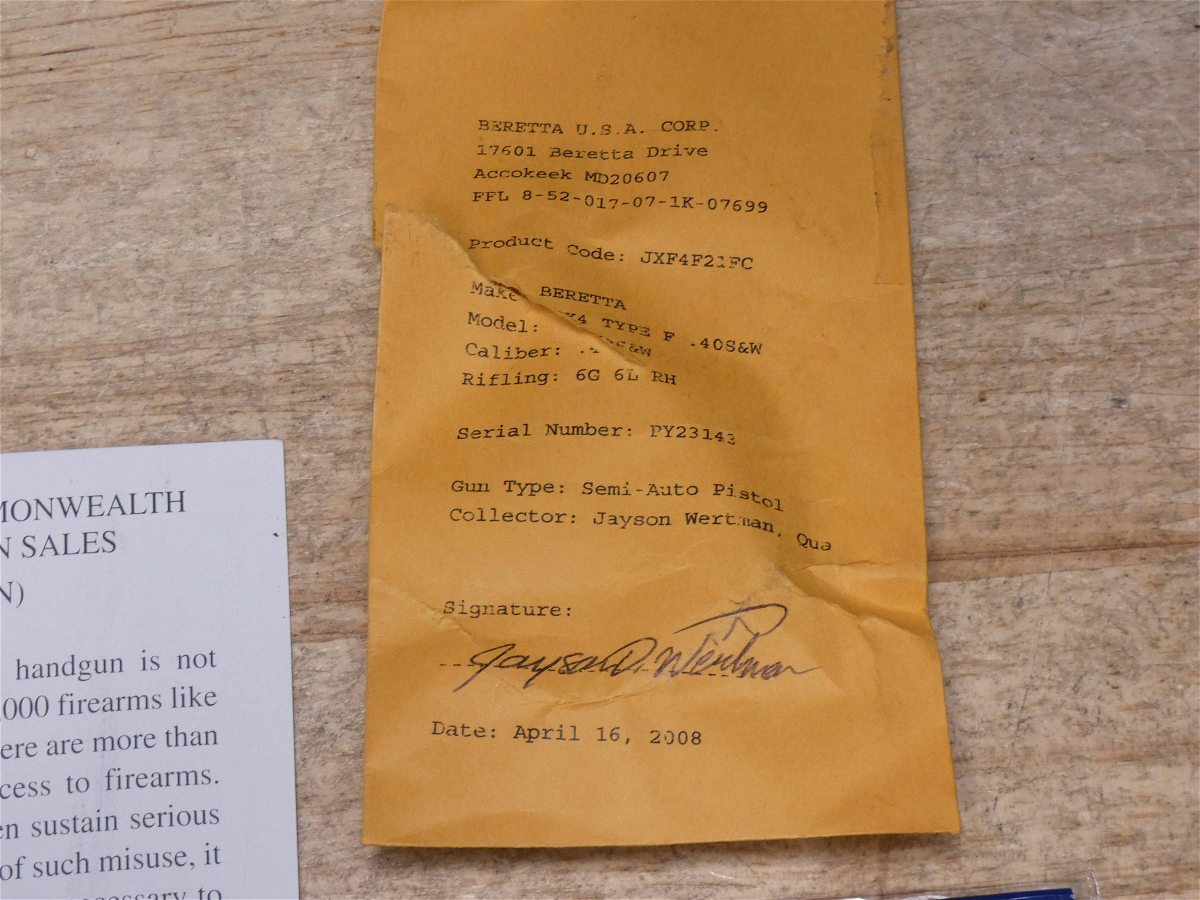 BERETTA U.S.A. CORP.
17601 Beretta Drive
Accokeek MD20607
FFL 8-52-017-07-1K-07699
Product Code: JXF4F21FC
Make BERETTA
Model: TYPE F .40S&W
Caliber:
Rifling: 6G 6L RH
Serial Number: PY23143
Gun Type: Semi-Auto Pistol
Collector: Jayson Wertman, Qua
Signature:
Jayson D. Wertman
Date: April 16, 2008
MONWEALTH
N SALES
N)
handgun is not
000 firearms like
ere are more than
cess to firearms.
en sustain serious
of such misuse, it
cessary to